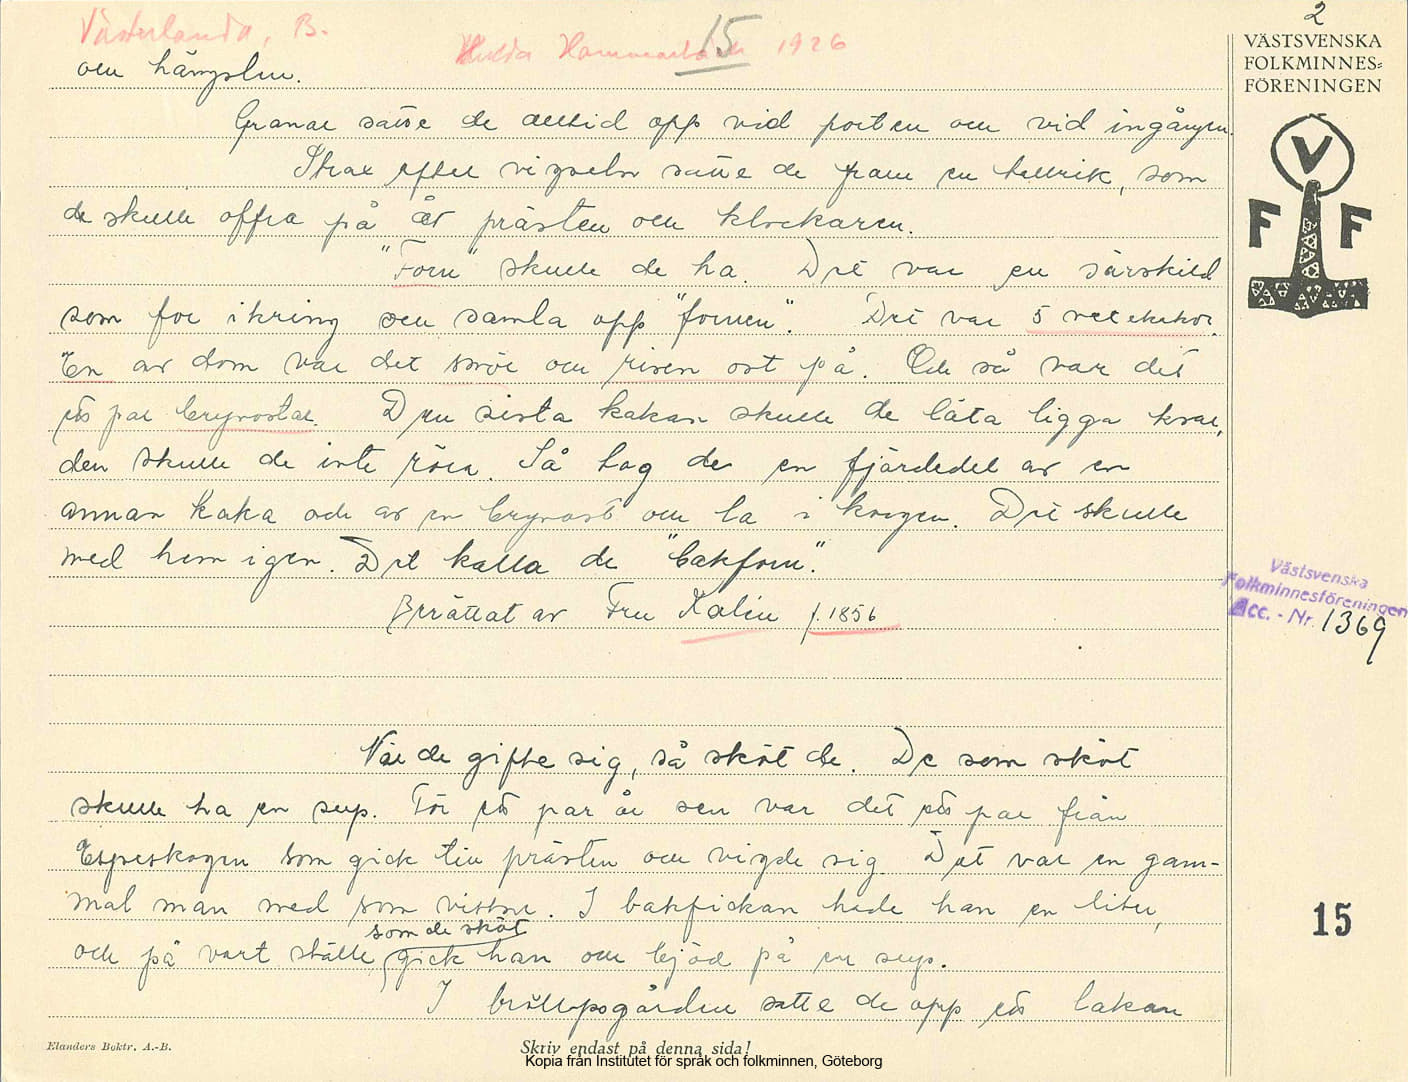 Västerlanda, B.
Hulda Hammarbäck 1926
15
2
VÄSTSVENSKA
FOLKMINNES=
FÖRENINGEN
V
F F
och hängslen.
Granar satte de alltid opp vid porten och vid ingången.
Strax efter vigseln satte de fram en tallrik, som
de skulle offra på åt prästen och klockaren.
"Forn" skulle de ha. Det var en särskild
som for ikring och samla opp "fornen". Det var 5 vetekakor.
En av dom var det smör och riven ost på. Och så var det
ett par grynostar. Den sista kakan skulle de låta ligga kvar,
den skulle de inte röra. Så tog de en fjärdedel av en
annan kaka och av en grynost och la i korgen. Det skulle
med hem igen. Det kalla de "bakforn".
Berättat av Fru Kalin f. 1856
Västsvenska
Folkminnesföreningen
Acc. - Nr. 1369
När de gifte sig, så sköt de. De som sköt
skulle ha en sup. För ett par år sen var det ett par från
som gick till prästen och vigde sig. Det var en gam-
mal man med som vittne. I bakfickan hade han en liter,
och på vart ställe som de sköt gick han och bjöd på en sup.
I bröllopsgården satte de opp ett lakan
15
Elanders Boktr. A.-B.
Skriv endast på denna sida!
Kopia från Institutet för språk och folkminnen, Göteborg